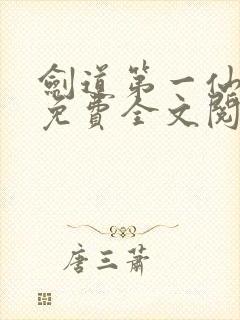 劍道第一仙
免費全文閱
唐三蕭